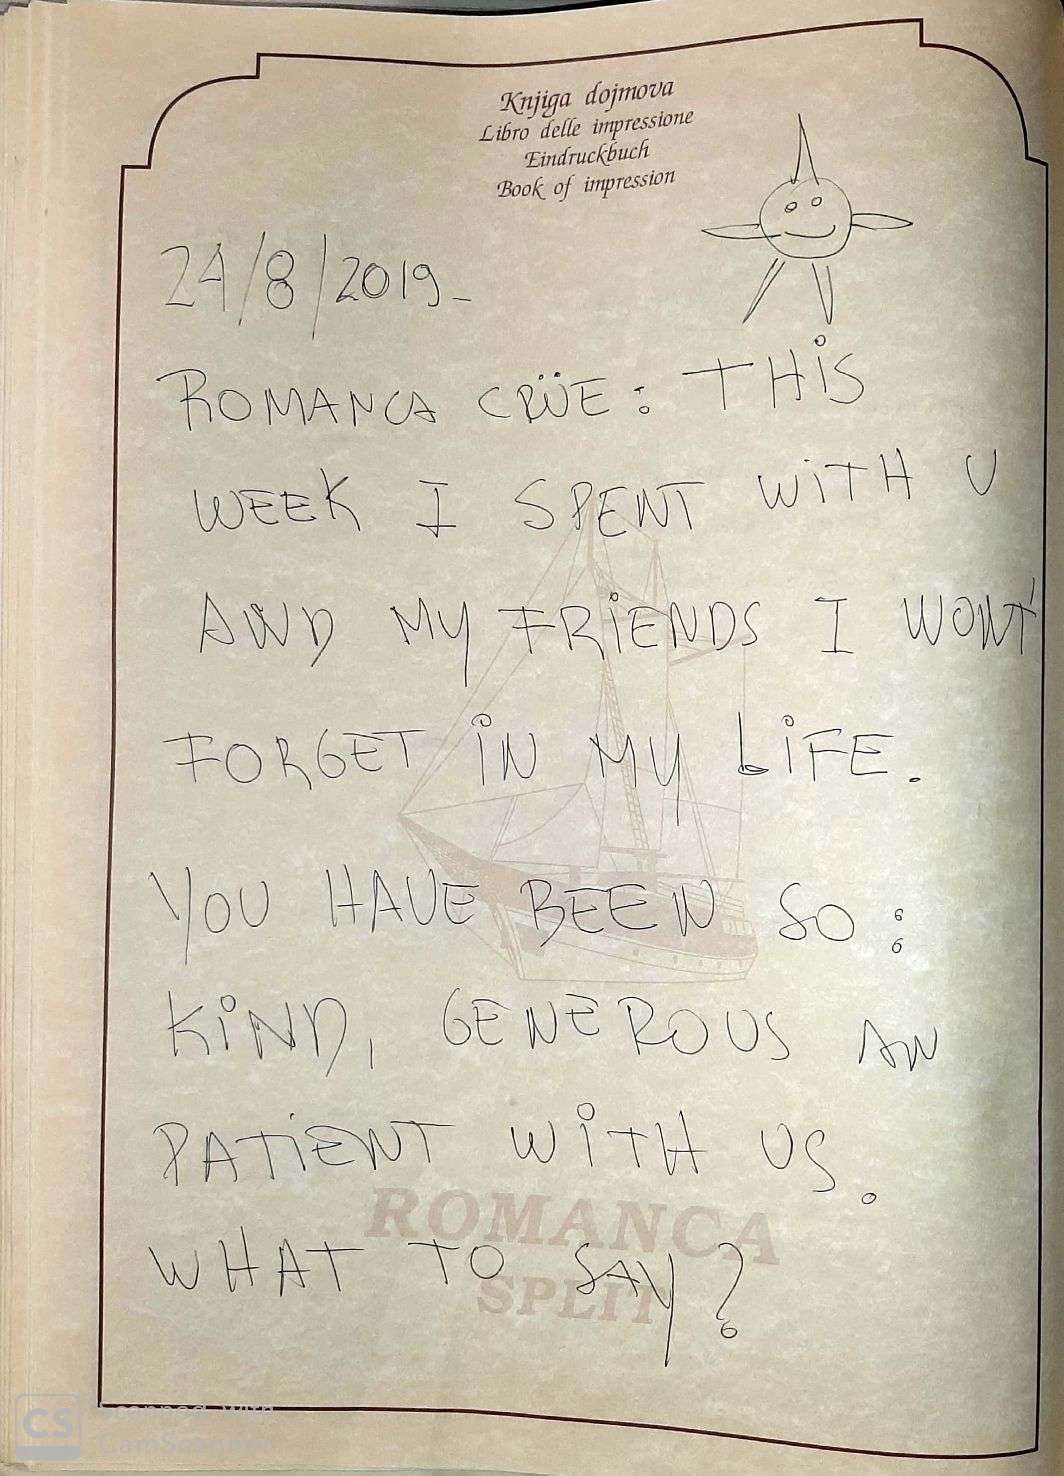 Knjiga dojmova
Libro delle impressione
Eindruckbuch
Book of impression
24/8/2019-
ROMANCA CRÜE: THIS
WEEK I SPENT WITH U
AND MY FRIENDS I WONT'
FORGET IN MY LIFE.
YOU HAVE BEEN SO:
KIND, GENEROUS AN
PATIENT WITH US.
ROMANCA
WHAT TO SAY?
SPLIT
CS Scanned with
CamScanner